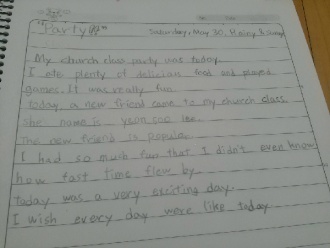 "Party"
Saturday, May 30, Rainy & Sunny
My church class party was today.
I ate plenty of delicious food and played
games. It was really fun
today a new friend came to my church class.
She name is yeon soo lee.
The new friend is popular.
I had so much fun that I didn't even know
how fast time flew by.
Today was a very exciting day.
I wish every day were like today